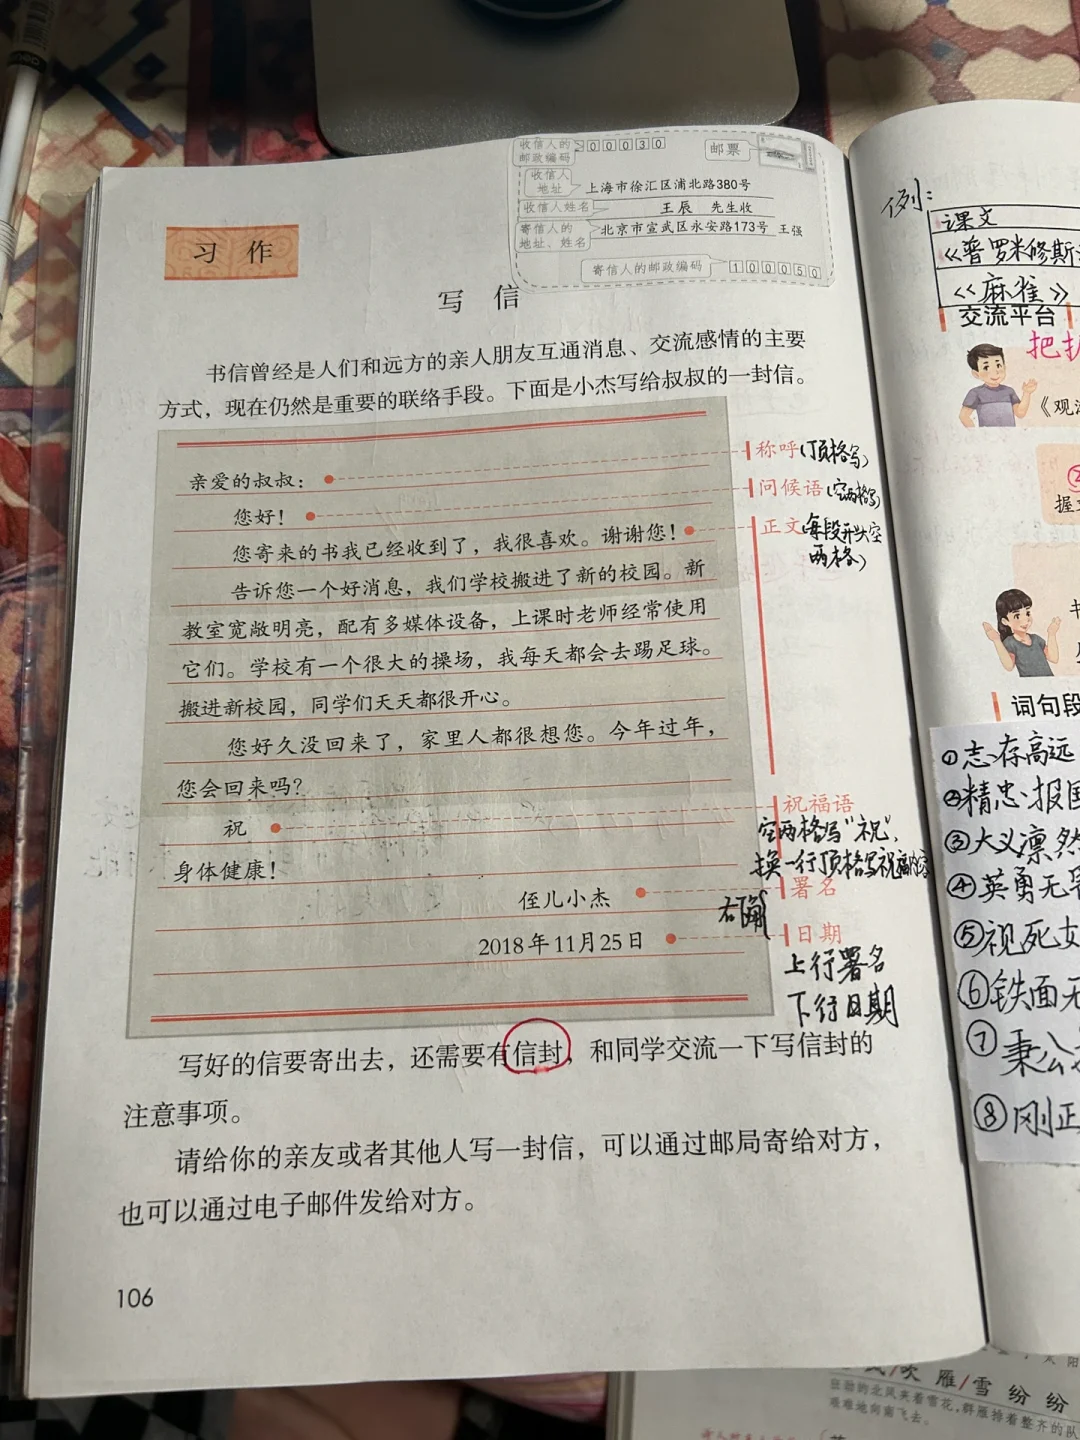 收信人的
邮政编码
00030
邮票
收信人
地址
上海市徐汇区浦北路380号
收信人姓名
王辰 先生收
寄信人的
地址、姓名
北京市宣武区永安路173号 王强
寄信人的邮政编码
100050
习作
写信
书信曾经是人们和远方的亲人朋友互通消息、交流感情的主要
方式，现在仍然是重要的联络手段。下面是小杰写给叔叔的一封信。
亲爱的叔叔：
称呼(顶格写)
您好！
问候语(空两格写)
您寄来的书我已经收到了，我很喜欢。谢谢您！
正文(每段开头空
两格)
告诉您一个好消息，我们学校搬进了新的校园。新
教室宽敞明亮，配有多媒体设备，上课时老师经常使用
它们。学校有一个很大的操场，我每天都会去踢足球。
搬进新校园，同学们天天都很开心。
您好久没回来了，家里人都很想您。今年过年，
您会回来吗？
祝
祝福语
空两格写“祝”，
换一行顶格写祝福内容
身体健康！
侄儿小杰
署名
右下角
2018年11月25日
日期
上行署名
下行日期
写好的信要寄出去，还需要有信封，和同学交流一下写信封的
注意事项。
请给你的亲友或者其他人写一封信，可以通过邮局寄给对方，
也可以通过电子邮件发给对方。
106
例：
课文
《普罗米修斯
《麻雀》
交流平台
把
《观
握
词句段
①志存高远
②精忠报国
③大义凛然
④英勇无
⑤视死
⑥铁面无
⑦秉公
⑧刚正
吹 雁/雪 纷 纷
狂劲的北风夹着雪花，群雁排着整齐的队
艰难地向南飞去。